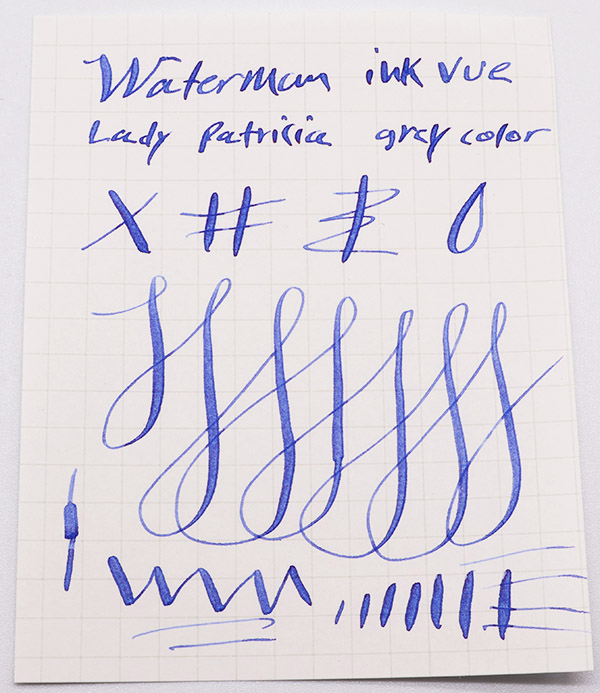 Waterman ink vue
Lady Patricia gray color